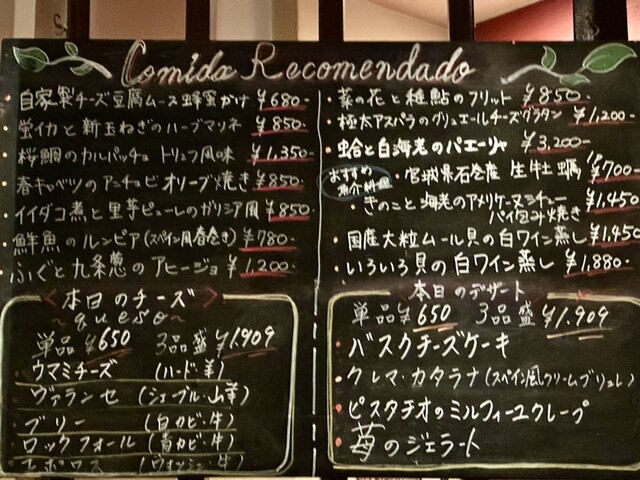 Comida Recomendado
・自家製チーズ豆腐ムース蜂蜜がけ ¥680-
・蛍イカと新玉ねぎのハーブマリネ ¥850-
・桜鯛のカルパッチョ トリュフ風味 ¥1,350-
・春キャベツのアンチョビオリーブ焼き ¥850-
・イイダコ煮と里芋ピューレのガリシア風 ¥850-
・鮮魚のルンピア(スペイン風春巻き) ¥780-
・ふぐと九条葱のアヒージョ ¥1,200-
<本日のチーズ>
~queso~
単品¥650 3品盛¥1,909
・ウマミチーズ (ハード・羊)
・ヴァランセ (シェーブル・山羊)
・ブリー (白カビ・牛)
・ロックフォール (青カビ・羊)
・エポワス (ウォッシュ・牛)
・菜の花と稚鮎のフリット ¥850-
・極太アスパラのグリュエールチーズグラタン ¥1,200-
・蛤と白海老のパエーリャ ¥3,200-
おすすめ
魚介料理
・宮城県石巻産 生牡蠣 1P ¥700-
・きのこと海老のアメリケーヌシチュー
パイ包み焼き ¥1,450
・国産大粒ムール貝の白ワイン蒸し ¥1,450
・いろいろ貝の白ワイン蒸し ¥1,880-
<本日のデザート
単品¥650 3品盛¥1,909
・バスクチーズケーキ
・クレマ・カタラナ(スペイン風クリームブリュレ)
・ピスタチオのミルフィーユクレープ
・苺のジェラート